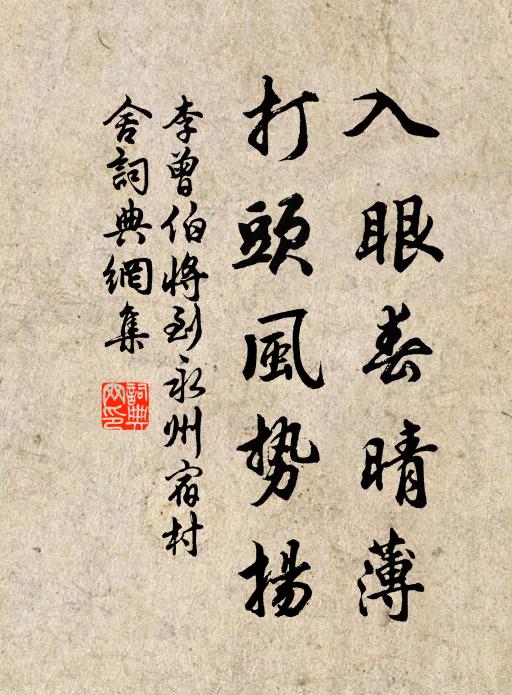 入眼春晴薄
打頭風势揚
李曾伯將到永州宿村
舍詞典網集
詞典
网印